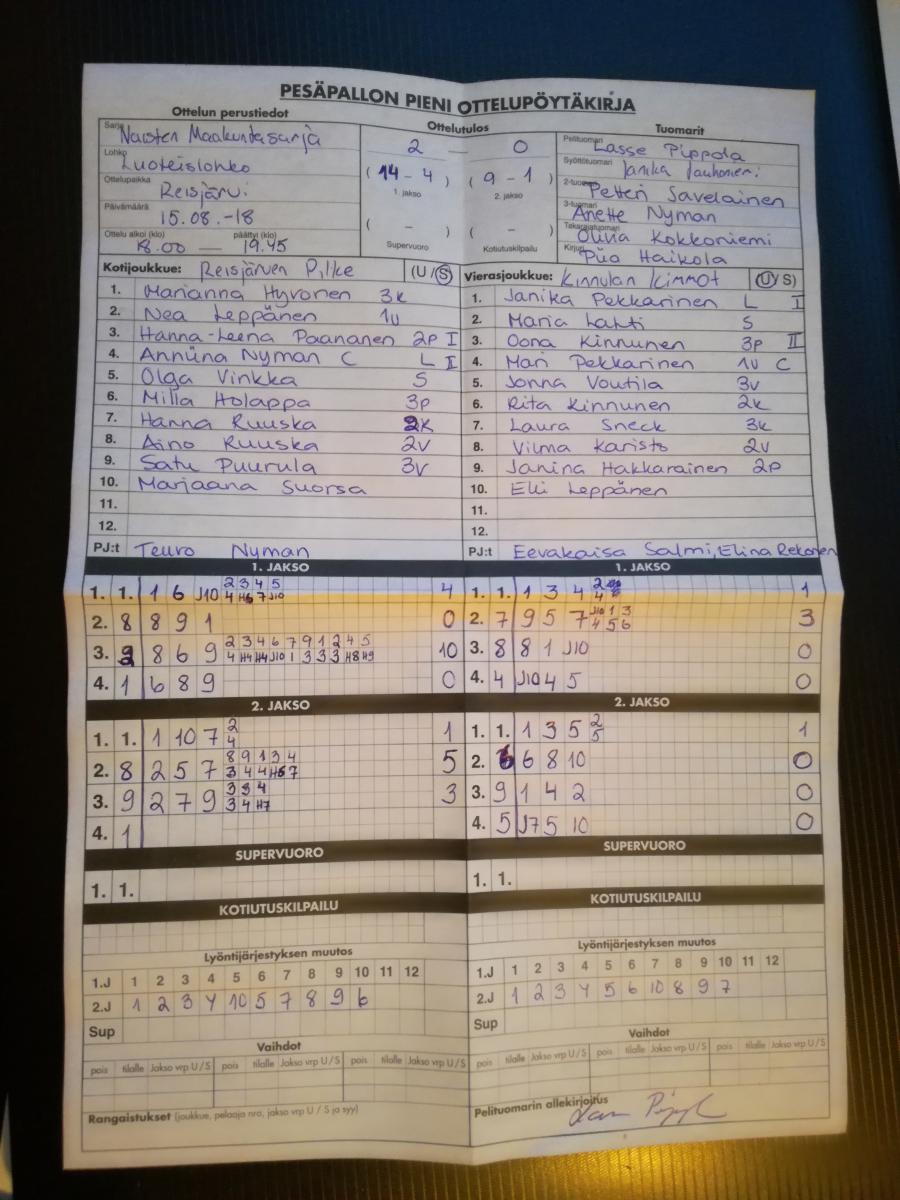 PESÄPALLON PIENI OTTELUPÖYTÄKIRJA
Ottelun perustiedot
Sarja Naisten Maakuntasarja
Lohko Luoteislohko
Ottelupaikka Reisjärvi
Päivämäärä 15.08.-18
Ottelu alkoi (klo) päättyi (klo)
18.00 — 19.45
Ottelutulos
2 — 0
(14 - 4) (9 - 1)
1. jakso 2. jakso
( - ) ( - )
Supervuoro Kotiutuskilpailu
Tuomarit
Pelituomari Lasse Pippola
Syöttötuomari Janika
2-tuomari Petteri Savelainen
3-tuomari Anette Nyman
Takarajatuomari Olivia Kokkoniemi
Kirjuri Piia Haikola
Kotijoukkue: Reisjärven Pilke (U/S)
1. Marianna Hyvönen 3k
2. Nea Leppänen 1v
3. Hanna-Leena Paananen 2p I
4. Anniina Nyman C L I
5. Olga Vinkka S
6. Milla Holappa 3p
7. Hanna Ruuska 2k
8. Aino Ruuska 2v
9. Satu Puurula 3v
10. Marjaana Suorsa
11.
12.
PJ:t Teuro Nyman
Vierasjoukkue: Kinnulan Kimmot (U/S)
1. Janika Pekkarinen L I
2. Maria Lahti S
3. Oona Kinnunen 3p II
4. Mari Pekkarinen 1v C
5. Jonna Voutila 3v
6. Rita Kinnunen 2k
7. Laura Sneck 3k
8. Vilma Karisto 2v
9. Janina Hakkarainen 2p
10. Elli Leppänen
11.
12.
PJ:t Eevakaisa Salmi, Elina Rekonen
1. JAKSO
1. 1. 1 6 J10 2 3 4 5 4
4 H6 7 J10
2. 8 8 9 1 0
3. 2 8 6 9 2 3 4 6 7 9 1 2 4 5 10
4 H4 H4 J10 1 3 3 3 H8 H9
4. 1 6 8 9 0
1. JAKSO
1. 1. 1 3 4 2 1
4
2. 7 9 5 7 J10 1 3 3
4 5 6
3. 8 8 1 J10 0
4. 4 J10 4 5 0
2. JAKSO
1. 1. 1 10 7 2 1
4
2. 8 2 5 7 8 9 1 3 4 5
3 4 4 H6 7
3. 9 2 7 9 3 3 4 3
3 4 H7
4. 1
2. JAKSO
1. 1. 1 3 5 2 1
5
2. 6 6 8 10 0
3. 9 1 4 2 0
4. 5 J7 5 10 0
SUPERVUORO
1. 1.
SUPERVUORO
1. 1.
KOTIUTUSKILPAILU
KOTIUTUSKILPAILU
Lyöntijärjestyksen muutos
1.J 1 2 3 4 5 6 7 8 9 10 11 12
2.J 1 2 3 4 10 5 7 8 9 6
Sup
Lyöntijärjestyksen muutos
1.J 1 2 3 4 5 6 7 8 9 10 11 12
2.J 1 2 3 4 5 6 10 8 9 7
Sup
Vaihdot
pois tilalle Jakso vrp U/S pois tilalle Jakso vrp U/S pois tilalle Jakso vrp U/S
Vaihdot
pois tilalle Jakso vrp U/S pois tilalle Jakso vrp U/S pois tilalle Jakso vrp U/S
Rangaistukset (joukkue, pelaaja nro, jakso vrp U / S ja syy)
Pelituomarin allekirjoitus